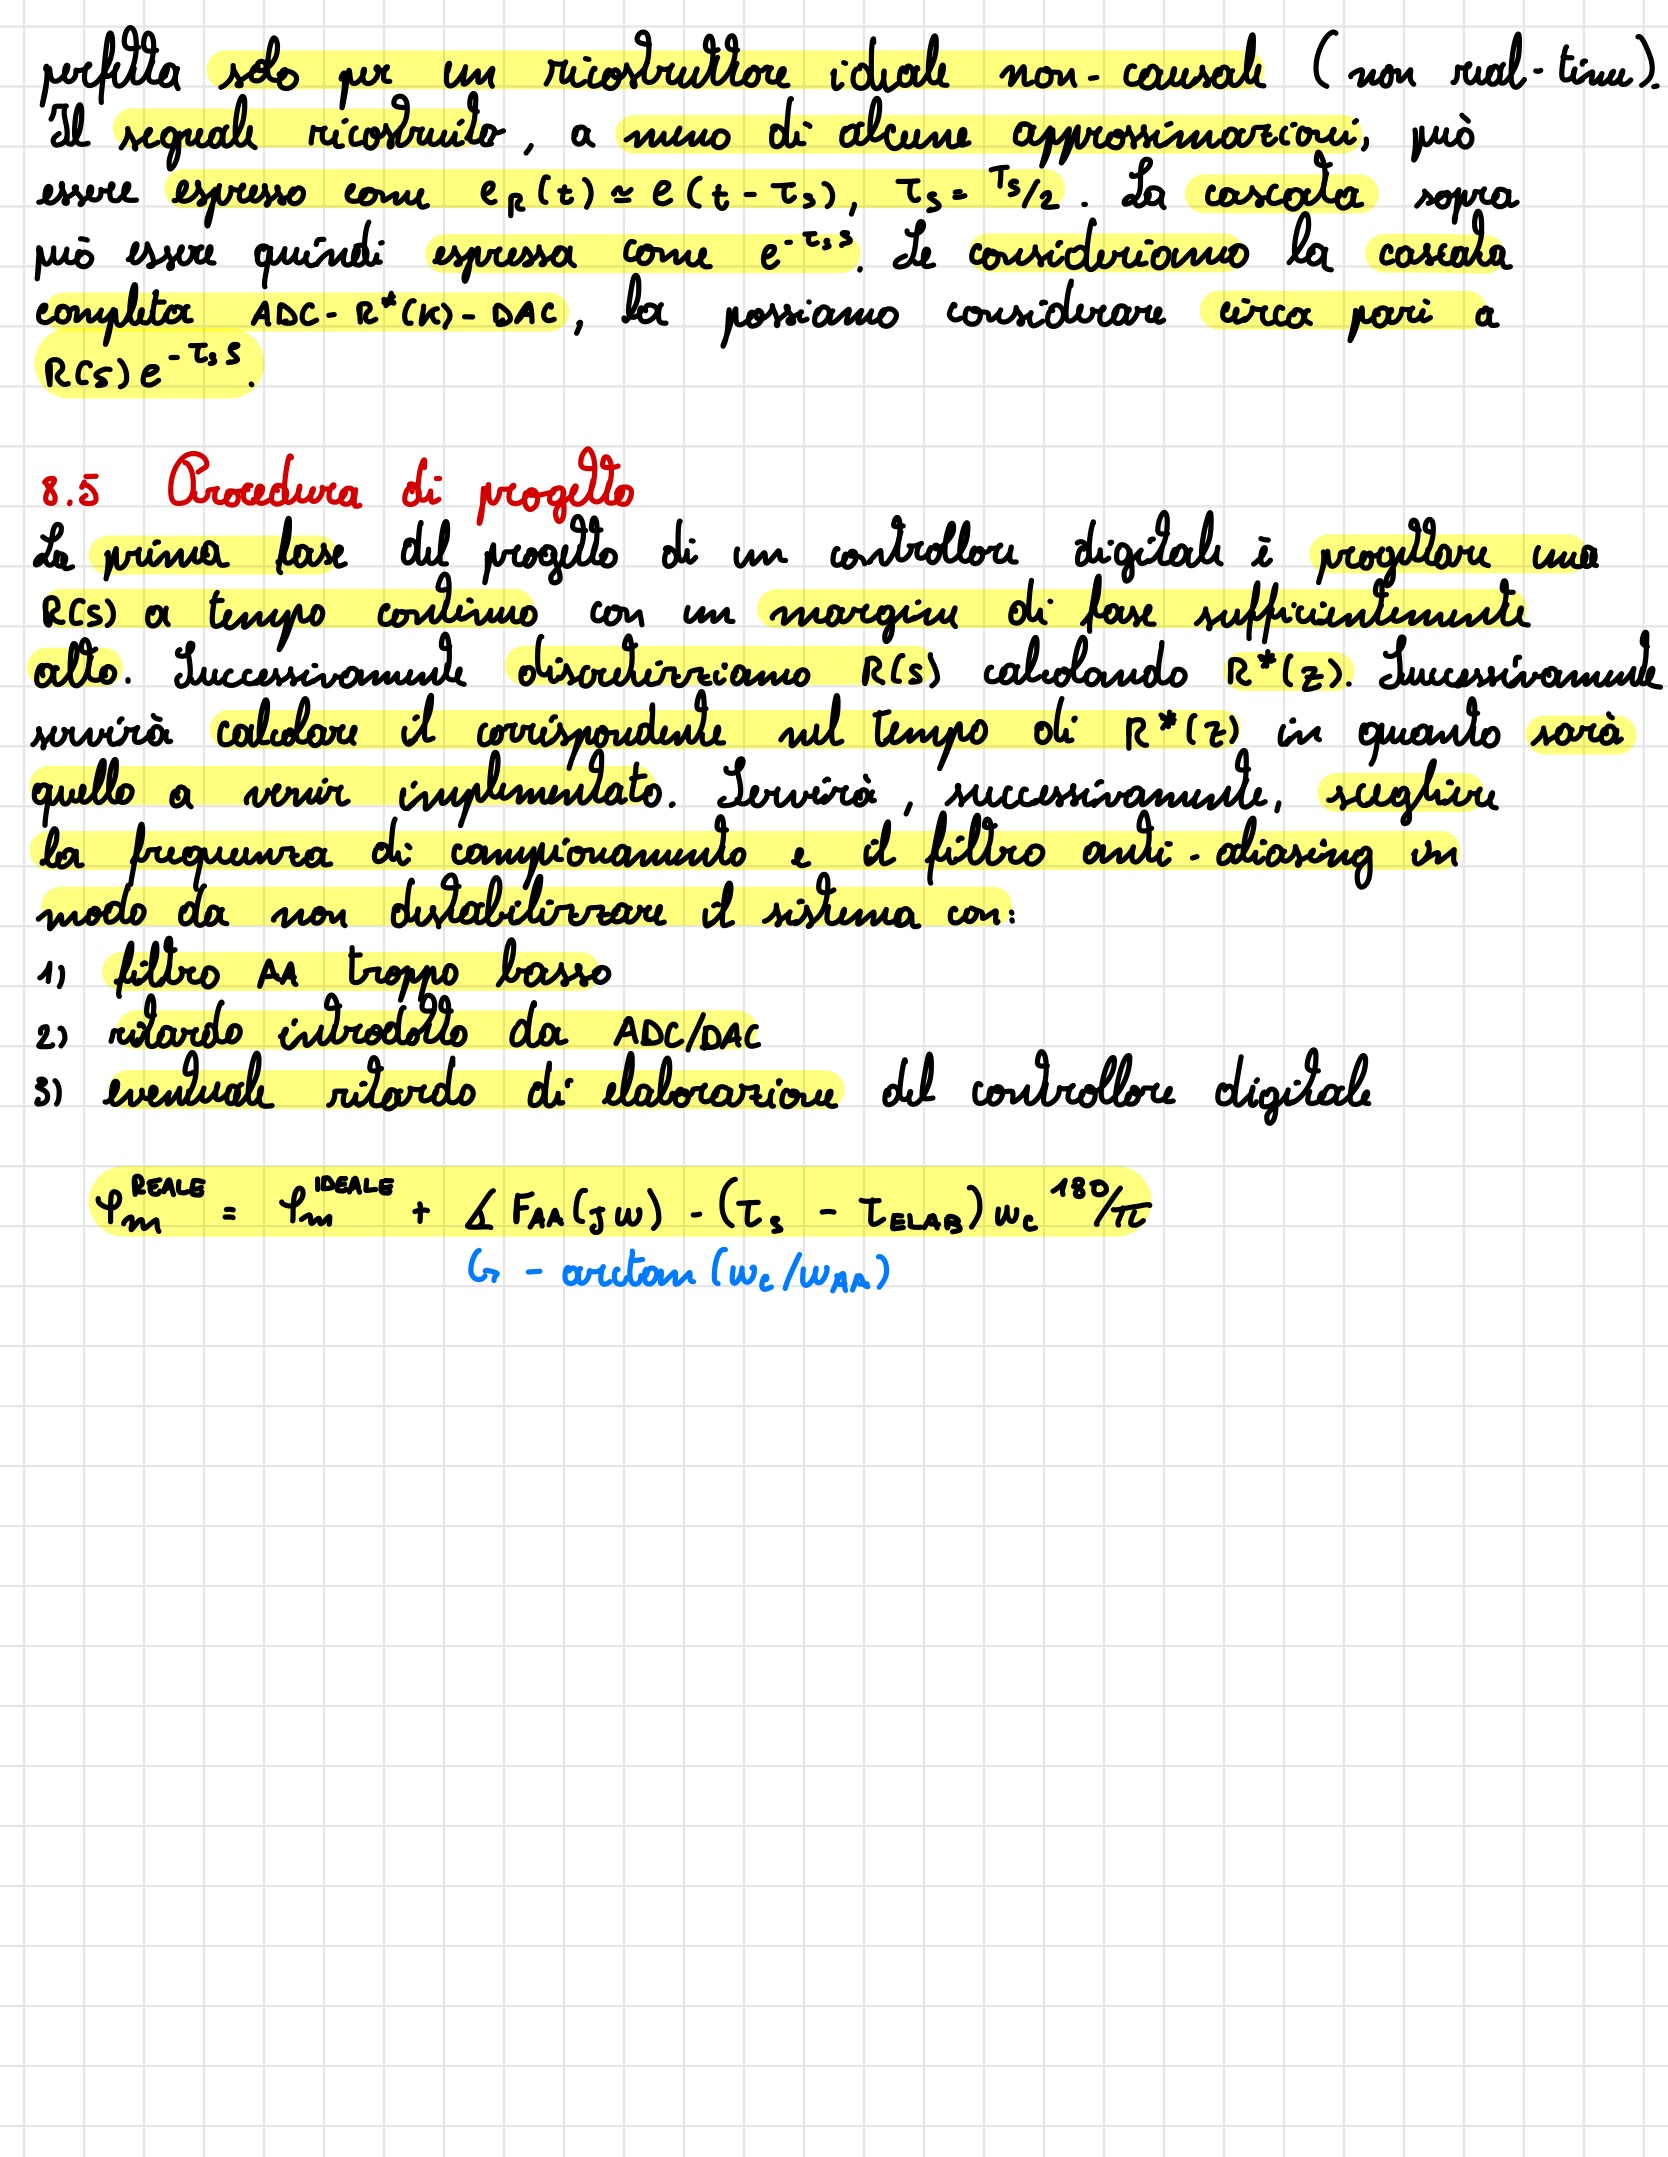 perfetta solo per un ricostruttore ideale non-causale (non real-time).
Il segnale ricostruito, a meno di alcune approssimazioni, può
essere espresso come e_R(t) ≃ e(t - τ_s), τ_s = T_s/2. La cascata sopra
può essere quindi espressa come e^{-τ_s s}. Se consideriamo la cascata
completa ADC - R*(K) - DAC, la possiamo considerare circa pari a
R(s)e^{-τ_s s}.
8.5 Procedura di progetto
La prima fase del progetto di un controllore digitale è progettare una
R(s) a tempo continuo con un margine di fase sufficientemente
alto. Successivamente discretizziamo R(s) calcolando R*(z). Successivamente
servirà calcolare il corrispondente nel tempo di R*(z) in quanto sarà
quello a venir implementato. Servirà, successivamente, scegliere
la frequenza di campionamento e il filtro anti-aliasing in
modo da non destabilizzare il sistema con:
1) filtro AA troppo basso
2) ritardo introdotto da ADC/DAC
3) eventuale ritardo di elaborazione del controllore digitale
φ_m^{REALE} = φ_m^{IDEALE} + ∡ F_{AA}(jω) - (τ_s - τ_{ELAB}) ω_c 180/π
↳ - arctan(ω_c/ω_{AA})